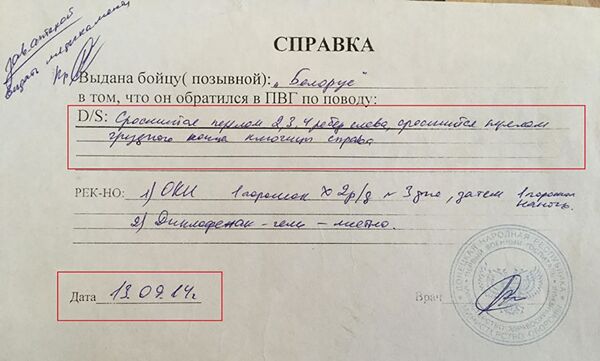 зав. аптекой
выдать медикаменты
СПРАВКА
Выдана бойцу( позывной): „Белорус"
в том, что он обратился в ПВГ по поводу:
D/S: Сросшийся перелом 2,3,4 ребер слева, сросшийся перелом
грудного конца ключицы справа
РЕК-НО: 1) ОКИ 1 порошок х 2р/д ~ 3 дня, затем 1 порошок
на ночь.
2) Диклофенак - гель - местно.
Дата 13.09.14г.
Врач
ДОНЕЦКАЯ НАРОДНАЯ РЕСПУБЛИКА